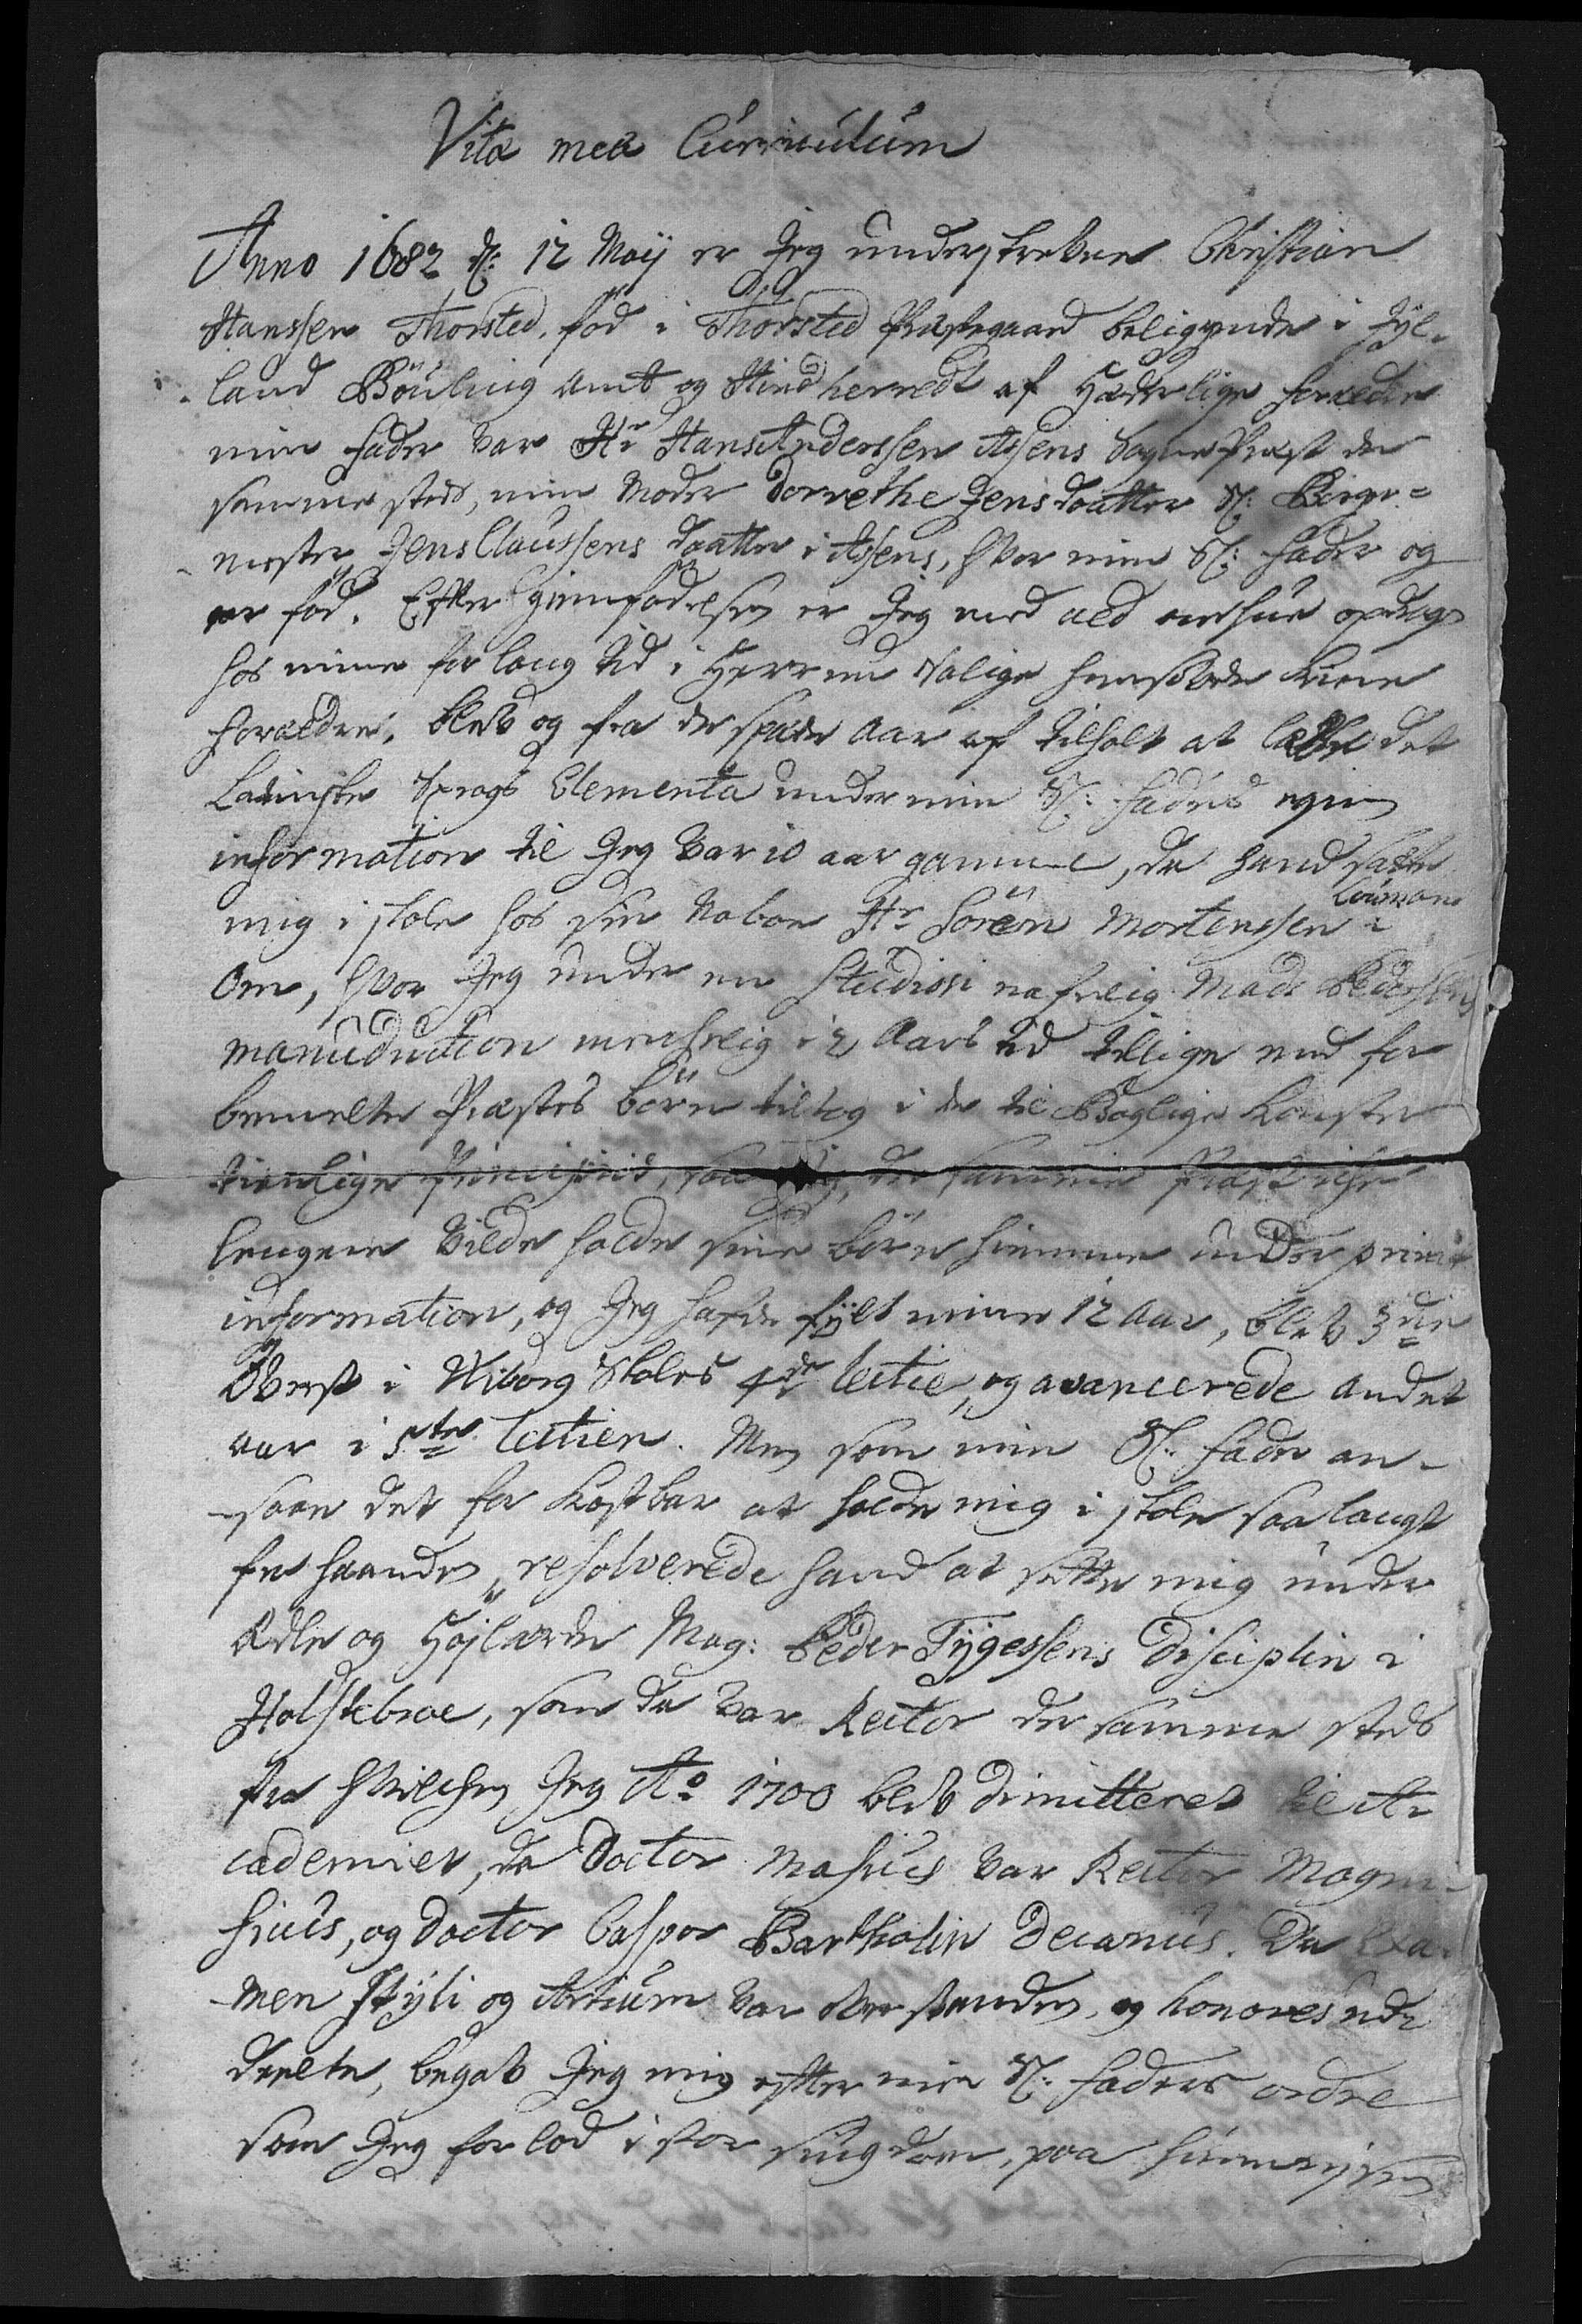 Vitæ meæ Curriculum
Anno 1682 d: 12 Maÿ er Jeg underskrebne Christian
Hanssen Thorsted, fød i Thorsted Præstegaard beligende i Jÿl-
land Bøuling amt og Hind herredt af Hæderlige forældre
min fader var Hr Hans Anderssen Assens Sogne Præst der
samme steds, min Moder Dorrethe Jens daatter Sl: Borge-
mester Jens Claussens daatter i Assens, hvor min Sl: fader og
er fød. Efter Gienfødelsen er Jeg med ald omhue opdragen
hos mine for lang tid i Herren Salige hensovede kiere
forældre, blev og fra de spæde Aar af tilholt at lære det
Latinske Sprogs Elementa under min Sl: faders egen
information til Jeg var 10 aar gammel, da hand satte
mig i skole hos sin Naboe Hr Søren Mortenssen Louman i
Om, hvor Jeg under en Studiosi nafnlig Mads Pederssens
manuduction menschelig i 2 Aars tid tillige med for
bemelte Præstes børn tiltog i de til Boglige Konster
tienlige Principiis, der samme Præst iche
lengere vilde holde sine børn hiemme under privat
information, og Jeg hafde fÿlt mine 12 Aar, blev 3die
Øverst i Wiborg Skoles 4de lectie, og avancerede andet
aar i 5te lectien. Men som min Sl: fader an-
saae det for kostbar at holde mig i skole saa langt
fra haanden, resolverede hand at sette mig under
Ædle og Højlærde Mag: Peder Tÿgessens disciplin i
Holstebroe, som da var Rector der samme steds
fra hvilchen Jeg Ao 1700 blev dimitteret til A-
cademiet, da Doctor Masius var Rector Magni-
ficus, og doctor Caspar Bartholin Decanus. Da Exa-
men stÿli og Artium var overstanden, og honores ud-
deelte, begav Jeg mig efter min Sl: faders ordre
som Jeg forlod i stor svagdom, paa hiemreÿsen